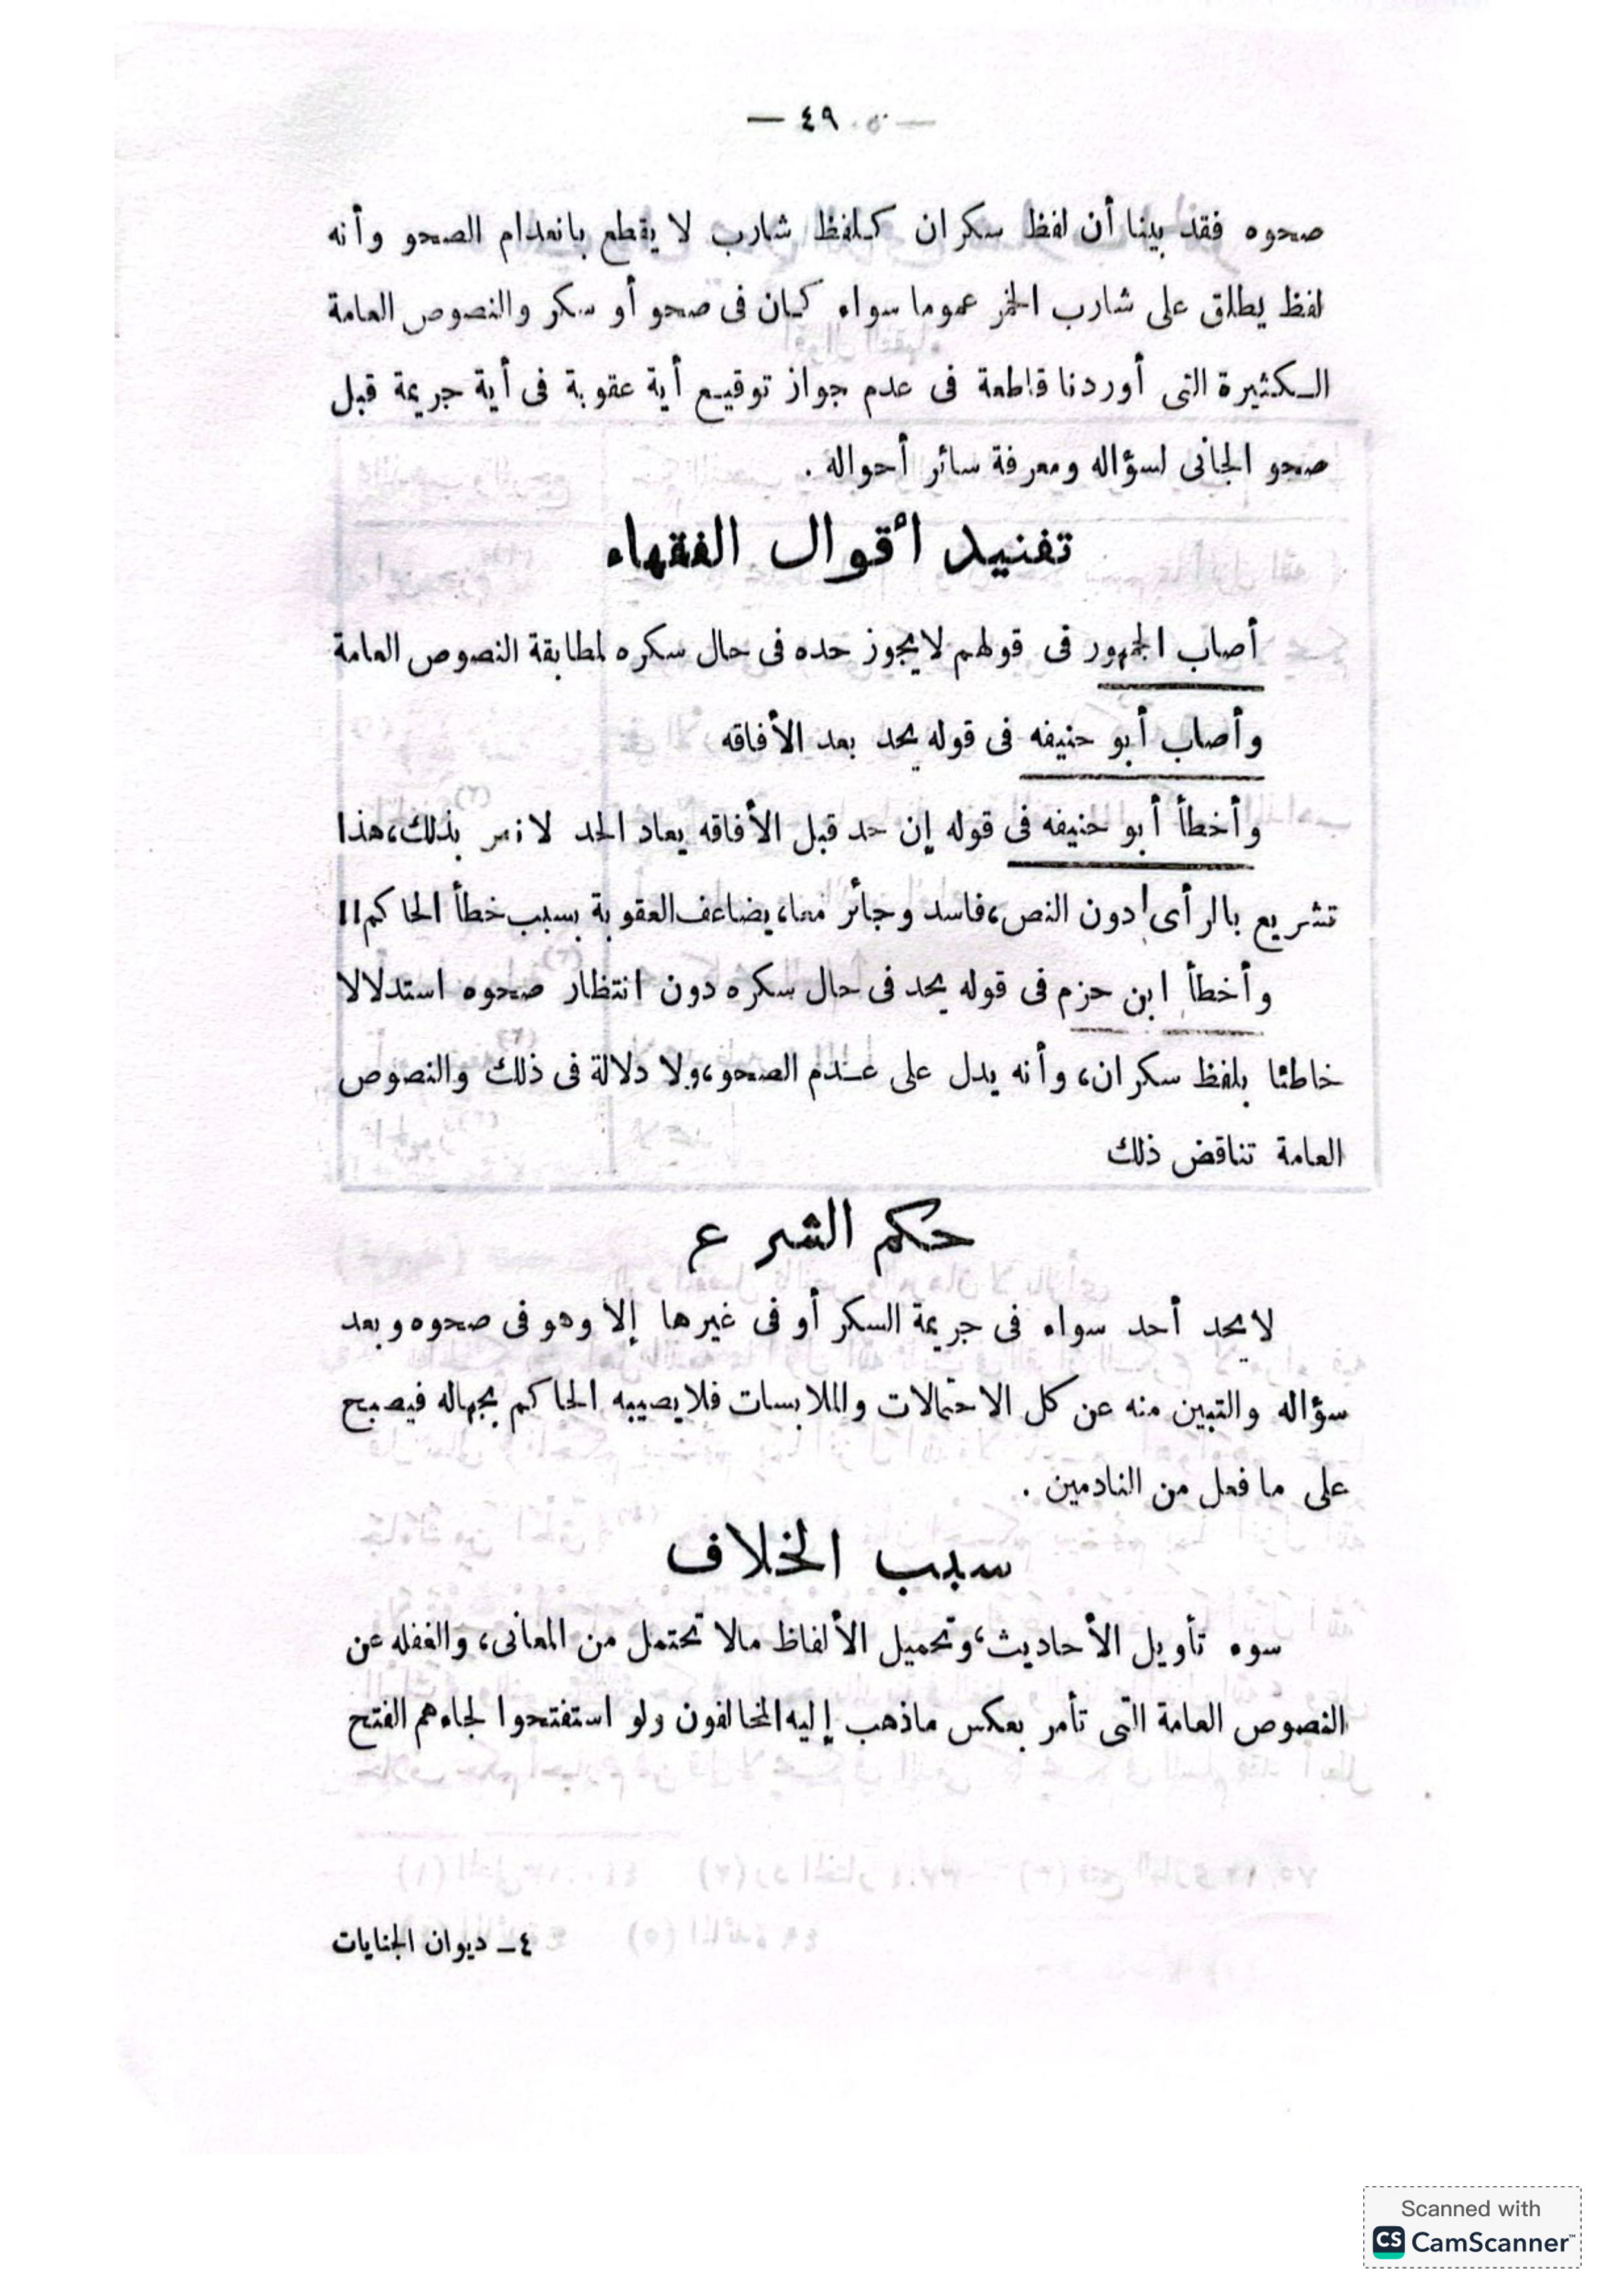 — ٤٩ —
صحوه فقد بينا أن لفظ سكران كلفظ شارب لا يقطع بانعدام الصحو وأنه
لفظ يطلق على شارب الخمر عموما سواء كان فى صحو أو سكر والنصوص العامة
الكثيرة التى أوردنا قاطعة فى عدم جواز توقيع أية عقوبة فى أية جريمة قبل
صحو الجانى لسؤاله ومعرفة سائر أحواله .
تفنيد أقوال الفقهاء
أصاب الجمهور فى قولهم لا يجوز حده فى حال سكره لمطابقة النصوص العامة
وأصاب أبو حنيفه فى قوله يحد بعد الأفاقه
وأخطأ أبو حنيفه فى قوله إن حد قبل الأفاقه يعاد الحد لا نص بذلك، هذا
تشريع بالرأى دون النص، فاسد وجائر معا، يضاعف العقوبة بسبب خطأ الحاكم!!
وأخطأ ابن حزم فى قوله يحد فى حال سكره دون انتظار صحوه استدلالا
خاطئا بلفظ سكران، وأنه يدل على عدم الصحو، ولا دلالة فى ذلك والنصوص
العامة تناقض ذلك
حكم الشرع
لا يحد أحد سواء فى جريمة السكر أو فى غيرها إلا وهو فى صحوه وبعد
سؤاله والتبين منه عن كل الاحتمالات والملابسات فلا يصيبه الحاكم بجهاله فيصبح
على ما فعل من النادمين .
سبب الخلاف
سوء تأويل الأحاديث، وتحميل الألفاظ مالا تحتمل من المعانى، والغفله عن
النصوص العامة التى تأمر بعكس ماذهب إليه المخالفون ولو استفتحوا لجاءهم الفتح
٤ ــ ديوان الجنايات
Scanned with
CS CamScanner™